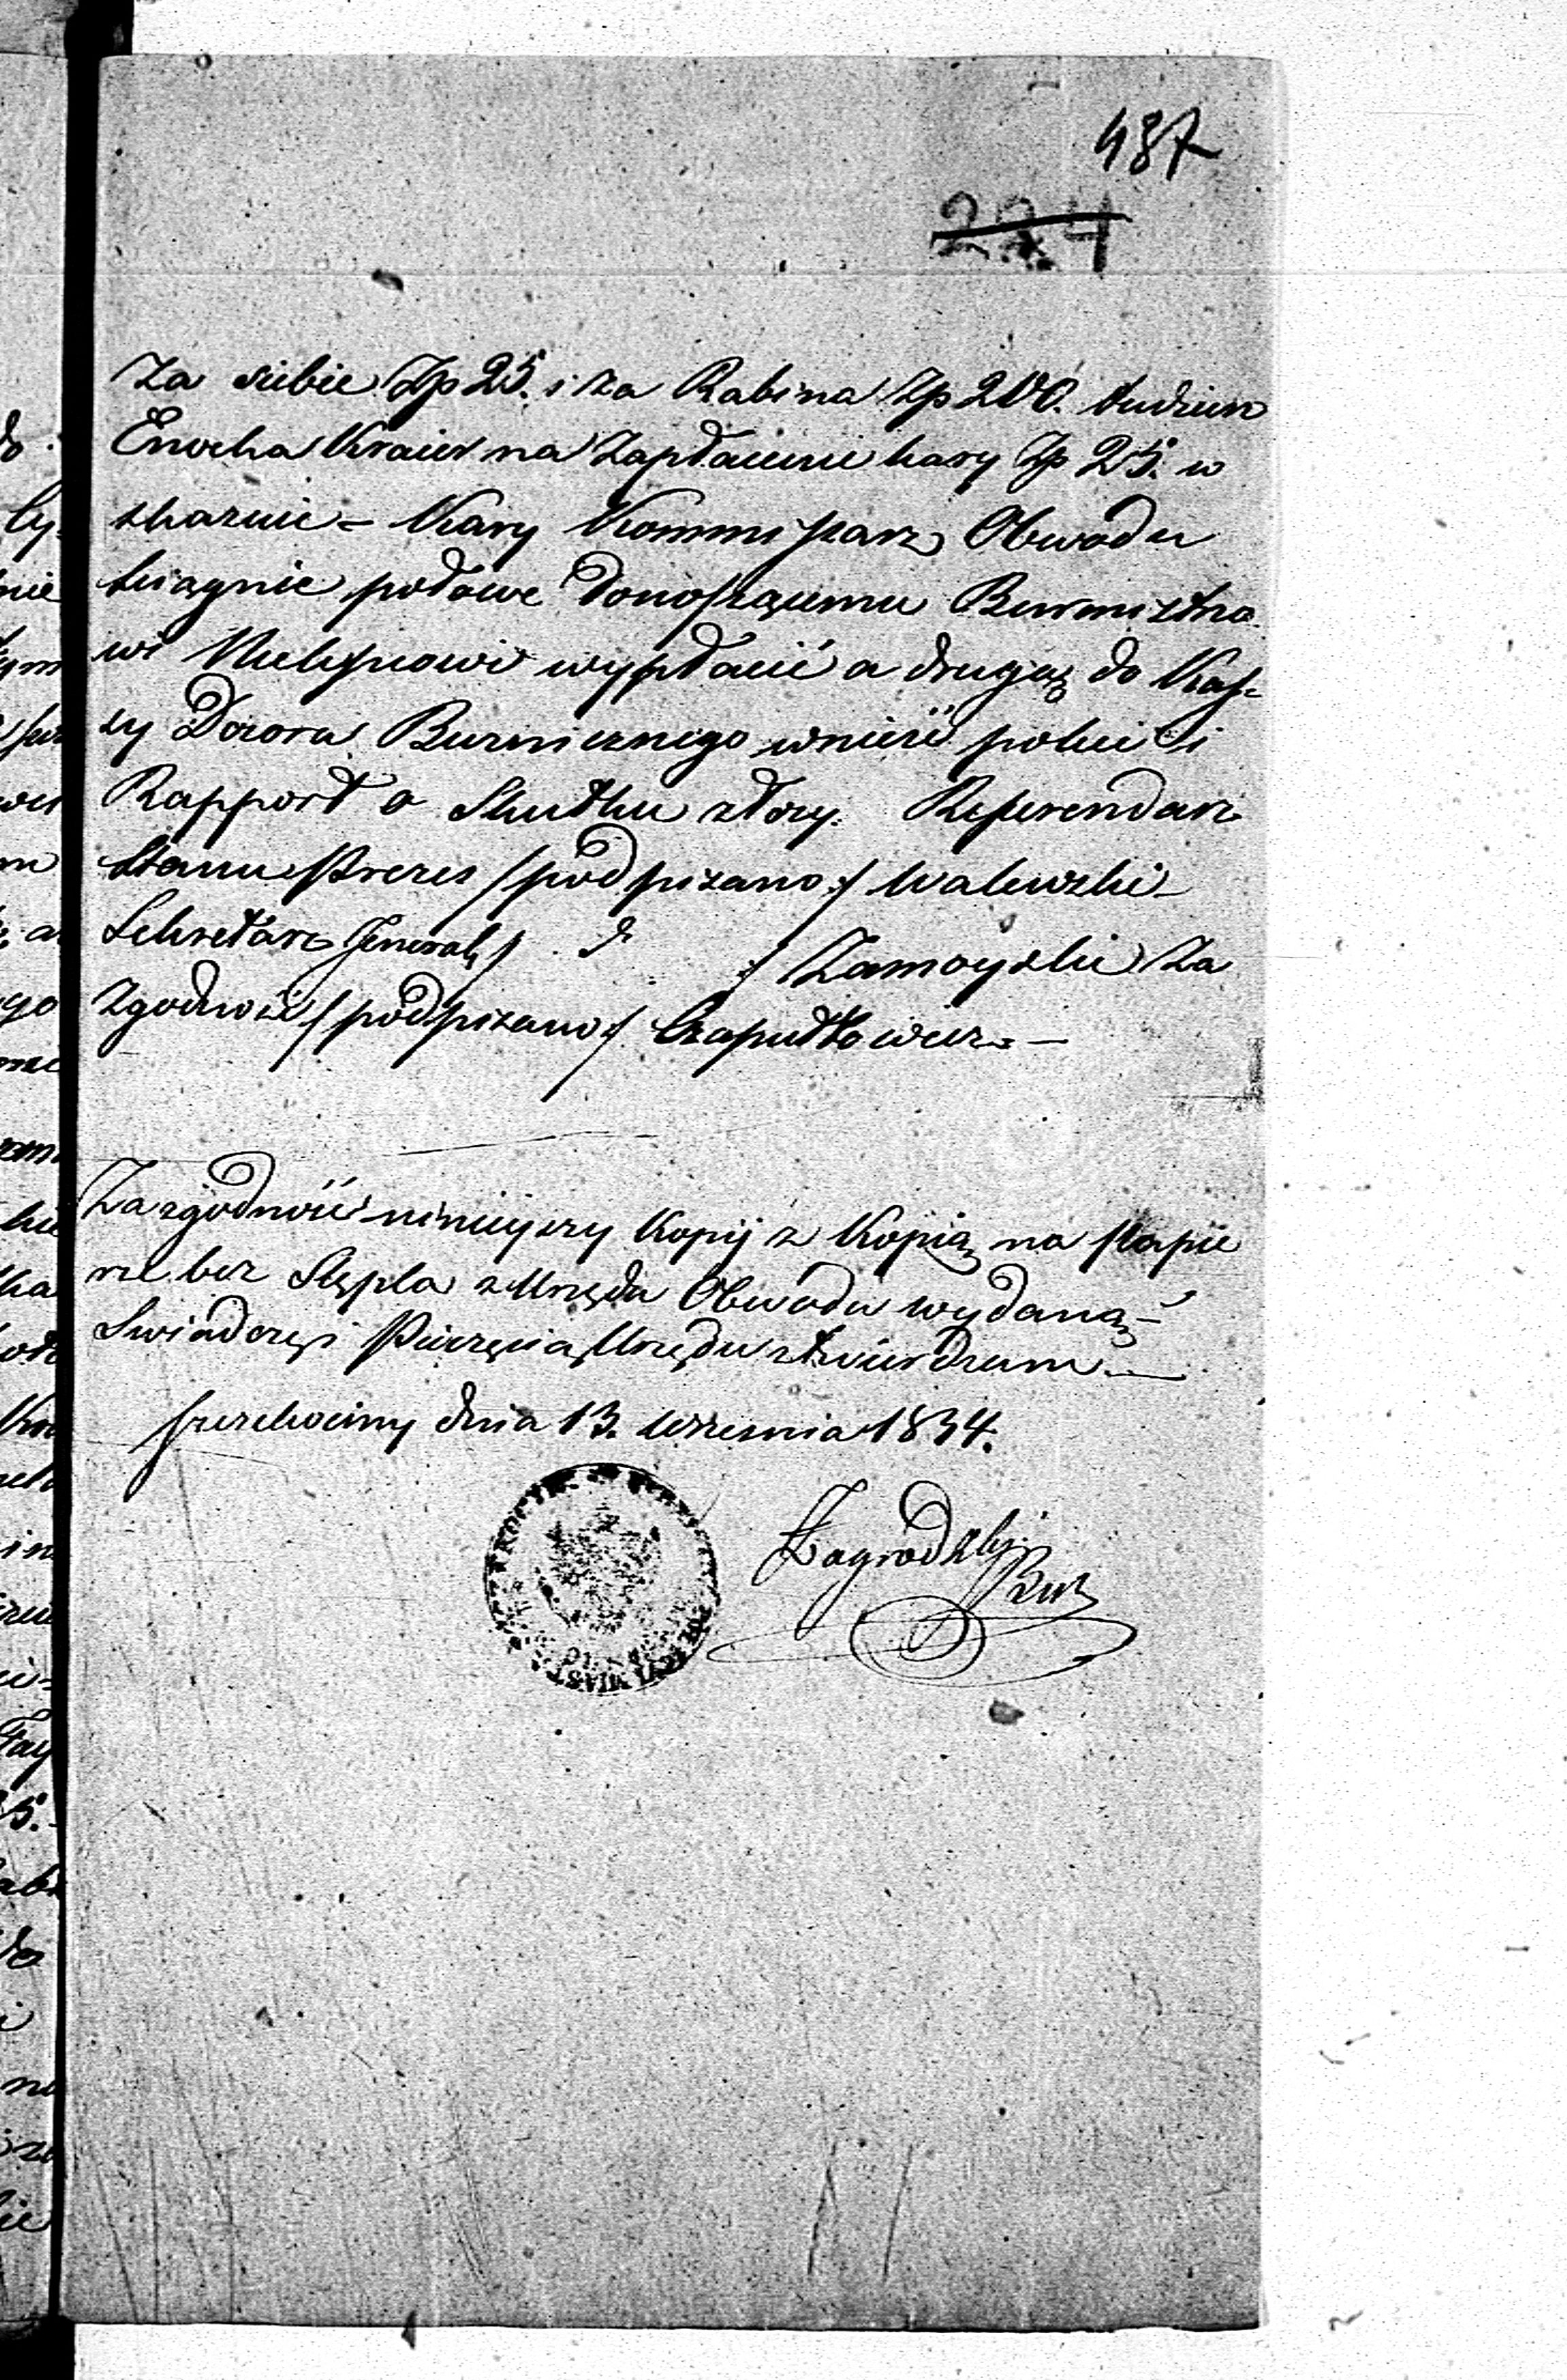 487
224
Za siebie Zp 25. i za Rabina Zp 200. tudzież
Enocha Kraier na zapłacenie kary Zp 25. w
skazuie = Kary Kommissarz Obwodu
sciągnie połowe donoszącemu Burmistrzo
wi wypłacić a drugą do Kas=
sy Dozoru Bużnicznego wnieść poleci i
Rapport o Skutku złoży. Referendarz
Stanu Prezes /podpisano:/ Walewski
Sekretarz Jeneralny /:/ Zamoyski Za
Zgodność /podpisano/ —
Za zgodność ninieyszy Kopij z Kopią na papie
rze bez Stępla z Urzędu Obwodu wydaną
Swiadczę i Pieczęcią Urzędu ztwierdzam —
Szczekociny dnia 13. Września 1834.
Zagrodzky